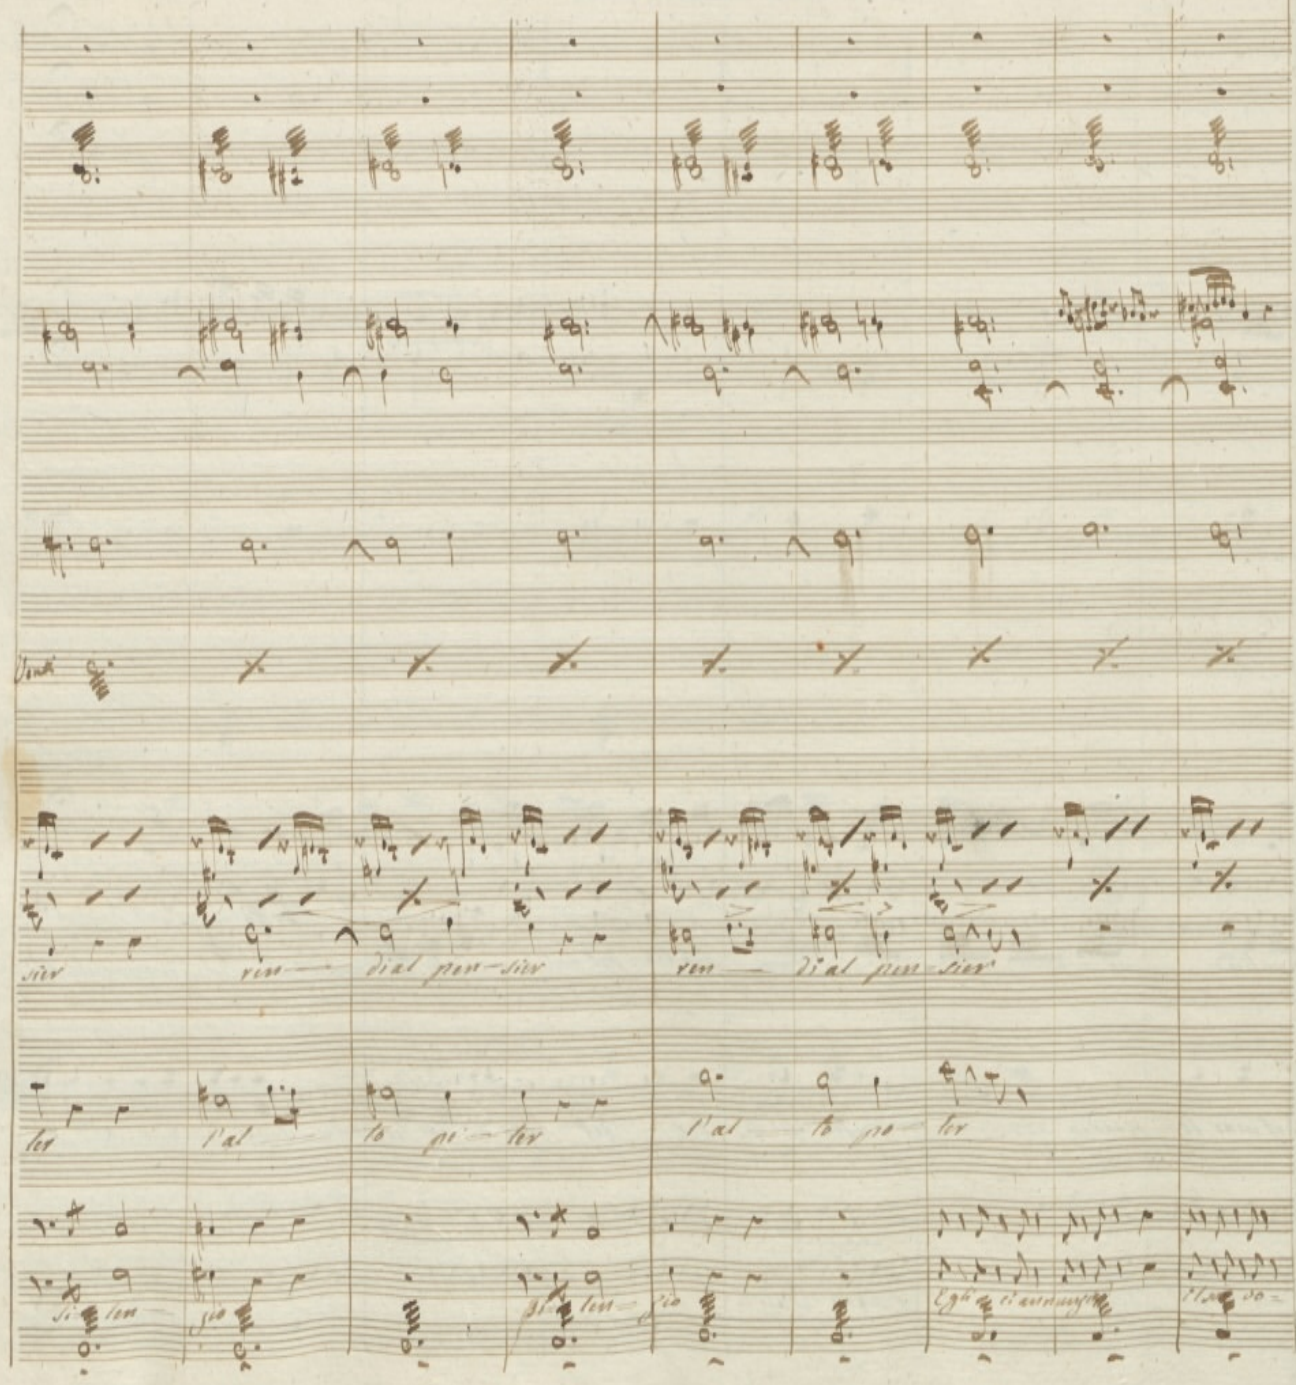 sier ren dial pen-sier ren dial pen-sier
ler l'al to po-ler l'al to po ler
si len zio si len zio Egli ci annunzia